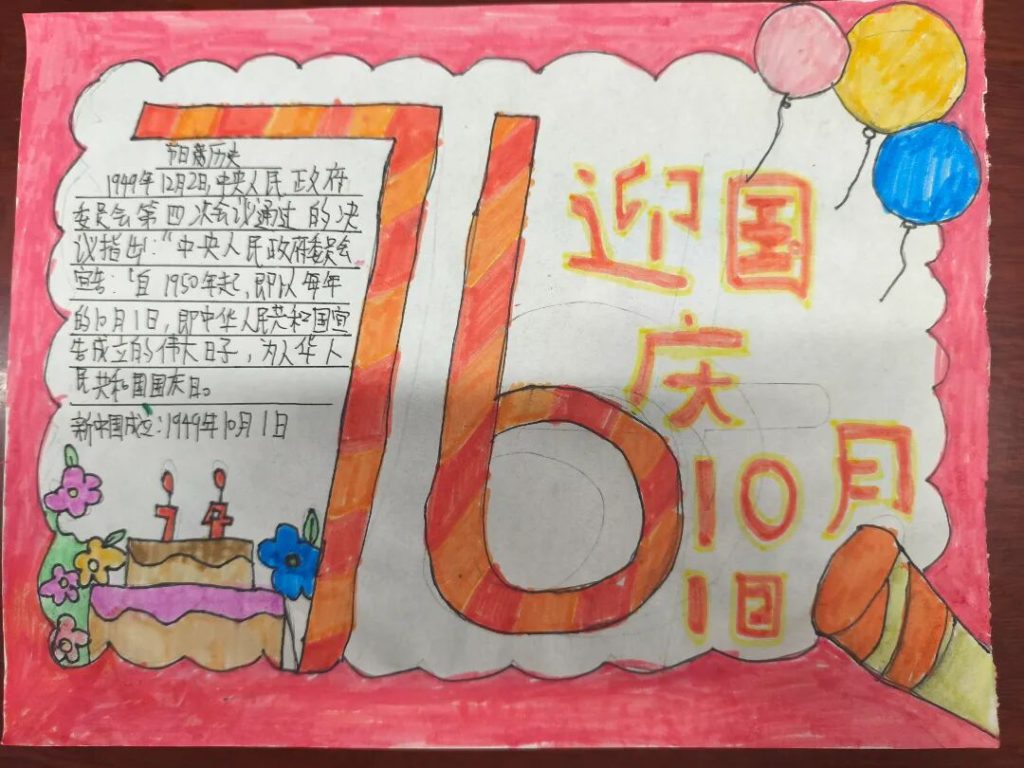 76
节日的历史
1949年12月2日,中央人民政府
委员会第四次会议通过的决
议指出:"中央人民政府委员会
宣告:'自1950年起,即以每年
的10月1日,即中华人民共和国宣
告成立的伟大日子,为人华人
民共和国国庆日。
新中国成立:1949年10月1日
迎国
庆
10月
1日
74